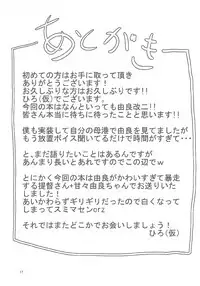 あとがき
初めての方はお手に取って頂き
ありがとうございます!
お久しぶりな方はお久しぶりです!!
ひろ(仮)でございます。
今回の本はなんといっても由良改二!!
皆さん本当に待ちに待ったことと思います。
僕も実装して自分の母港で由良を見てましたが
もう放置ボイス聞いてるだけで時間がすぎて・・・
と、まだ語りたいことはあるんですが
あんまり長いとあれですのでこの辺でw
とにかく今回の本は由良がかわいすぎて暴走
する提督さん・甘々由良ちゃんでお送りいた
しました!
あいかわらずギリギリだったので白くなって
しまってスミマセンorz
それではまたどこかでお会いしましょう!
ひろ(仮)
17